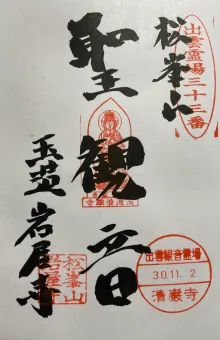 松峯山
出雲霊場三十三番
聖王観音
玉造岩屋寺
松峯山
岩屋寺
出雲観音霊場
30.11.2
清巌寺